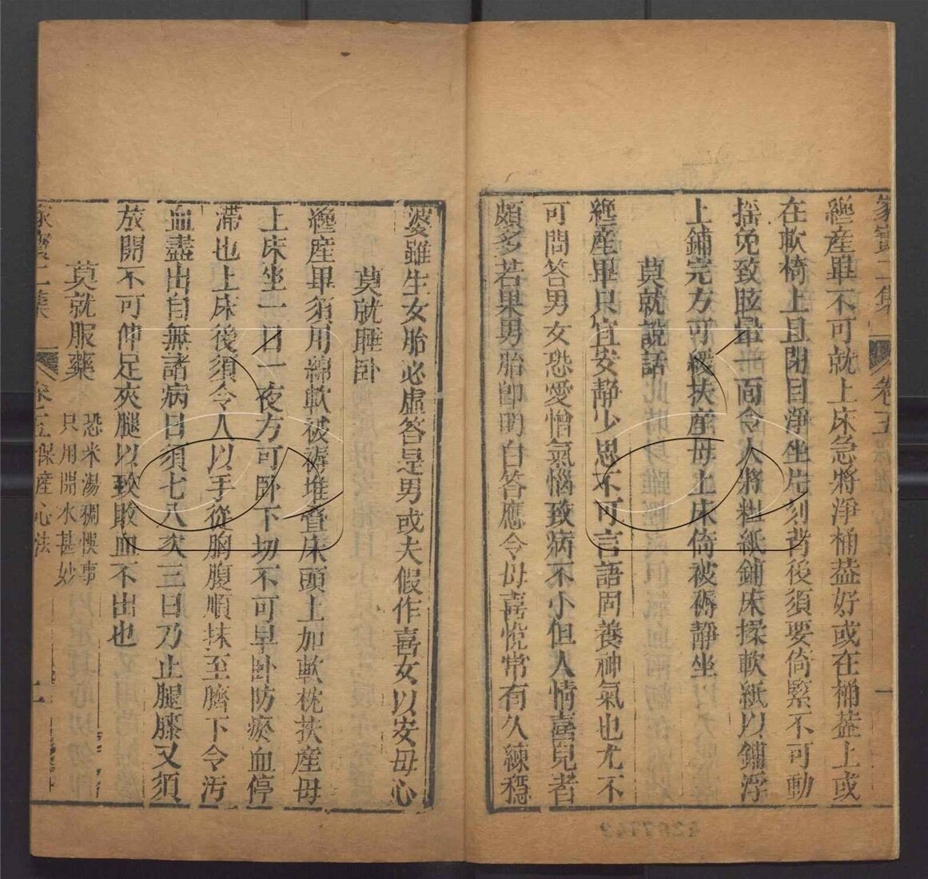 家寶二集 卷五 一
纔產畢不可就上床急將淨桶葢好或在桶葢上或
在軟椅上且閉目淨坐片刻背後須要倚緊不可動
搖免致眩暈一面令人將粗紙鋪床揉軟紙以鋪浮
上鋪完方可緩扶產母上床倚被褥靜坐
莫就說話
纔產畢只宜安靜少思不可言語固養神氣也尤不
可問答男女恐愛憎氣惱致病不小但人情喜兒者
頗多若果男胎卽明白答應令母喜悅常有久練穩
婆雖生女胎必虛答是男或夫假作喜女以安母心
莫就睡卧
纔產畢須用綿軟被褥堆疊床頭上加軟枕扶產母
上床坐一日一夜方可卧下切不可早卧防瘀血停
滯也上床後須令人以手從胸腹順抹至臍下令汚
血盡出自無諸病日須七八次三日乃止腿膝又須
放開不可伸足夾腿以致敗血不出也
莫就服藥 恐米湯稠悞事
只用開水甚妙
家寶二集 卷五保產心法 二